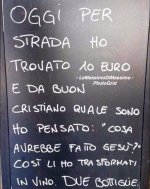 OGGI PER
STRADA HO
TROVATO 10 EURO
- LeMassimeDiMassimo -
PhotoGrid
E DA BUON
CRISTIANO QUALE SONO
HO PENSATO: "COSA
AVREBBE FATO GESÙ?"
COSÌ LI HO TRASFORMATI
IN VINO. DUE BOTTIGLIE.